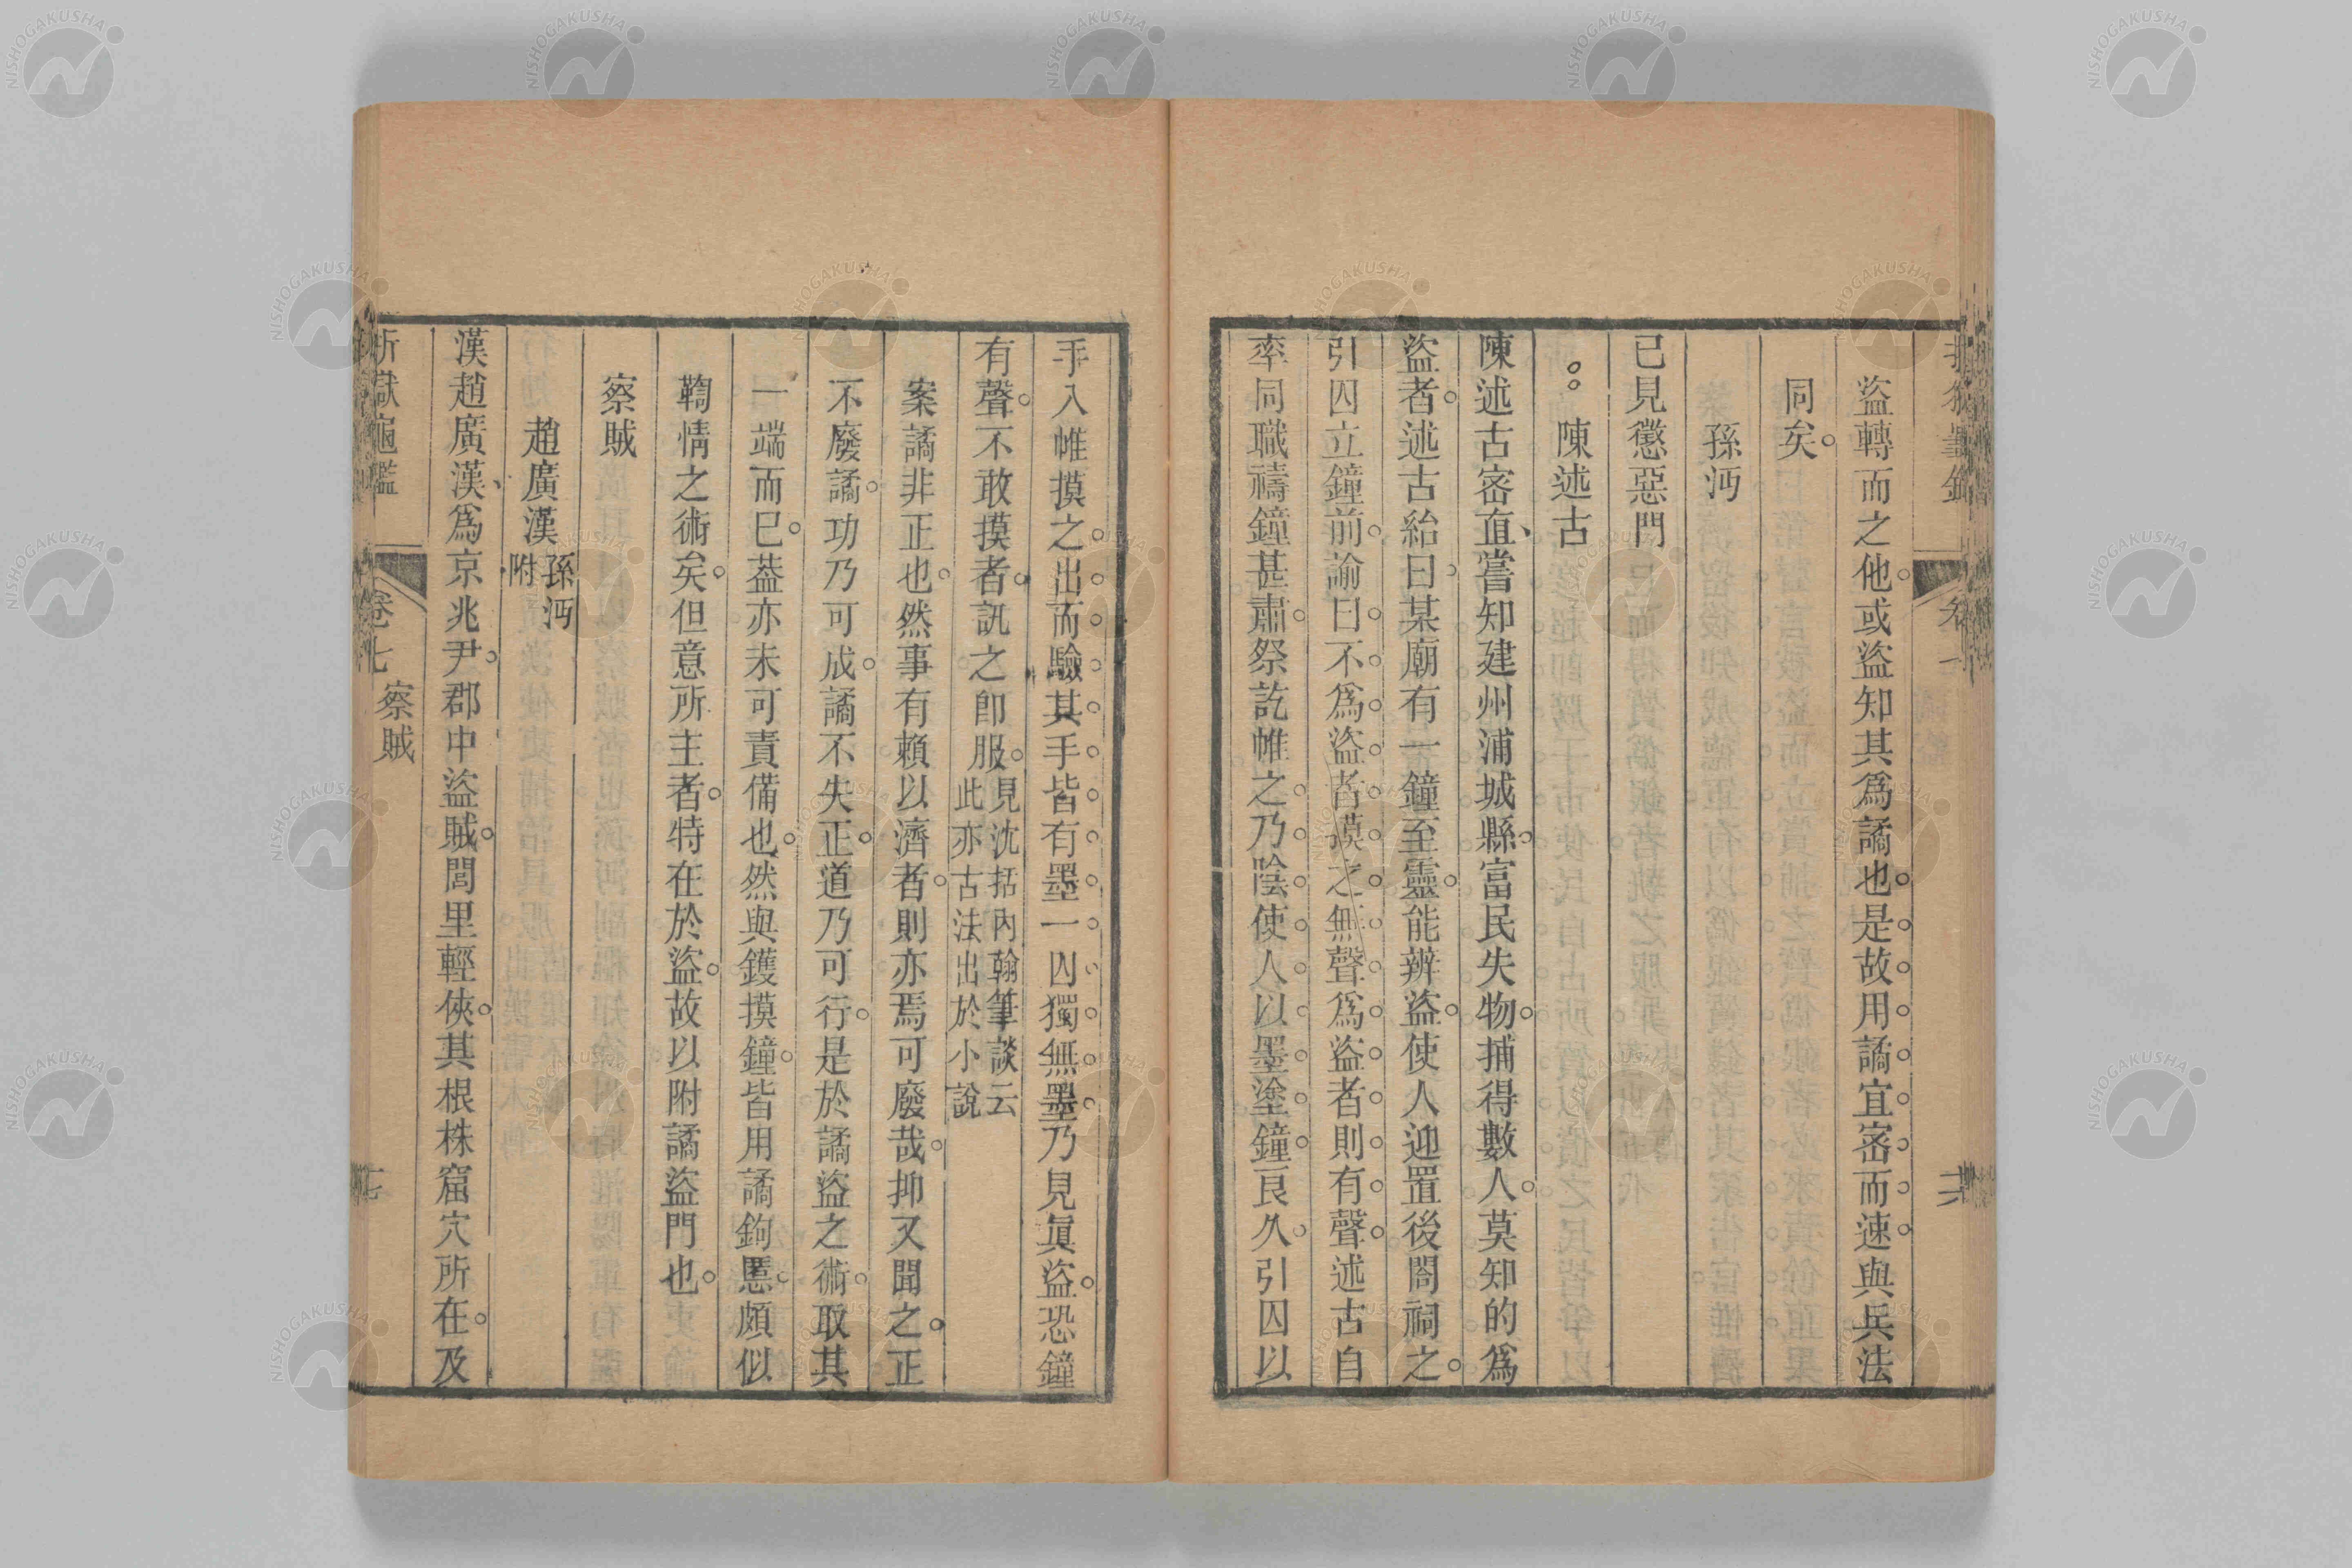 盜轉而之他或盜知其爲譎也是故用譎宜宻而速與兵法
同矣
孫沔
已見懲惡門
陳述古
陳述古宻直嘗知建州浦城縣富民失物捕得數人莫知的爲
盜者述古紿曰某廟有一鐘至靈能辨盜使人迎置後閤祠之
引囚立鐘前諭曰不爲盜者摸之無聲爲盜者則有聲述古自
率同職禱鐘甚肅祭訖帷之乃陰使人以墨塗鐘良久引囚以
手入帷摸之出而驗其手皆有墨一囚獨無墨乃見眞盜恐鐘
有聲不敢摸者訊之卽服見沈括內翰筆談云此亦古法出於小說
案譎非正也然事有賴以濟者則亦焉可廢哉抑又聞之正
不廢譎功乃可成譎不失正道乃可行是於譎盜之術取其
一端而已葢亦未可責備也然與鑊摸鐘皆用譎鉤慝頗似
鞫情之術矣但意所主者特在於盜故以附譎盜門也
察賊
趙廣漢孫沔附
漢趙廣漢爲京兆尹郡中盜賊閭里輕俠其根株窟穴所在及
折獄龜鑑
卷七
察賊
NISHOGAKUSHA